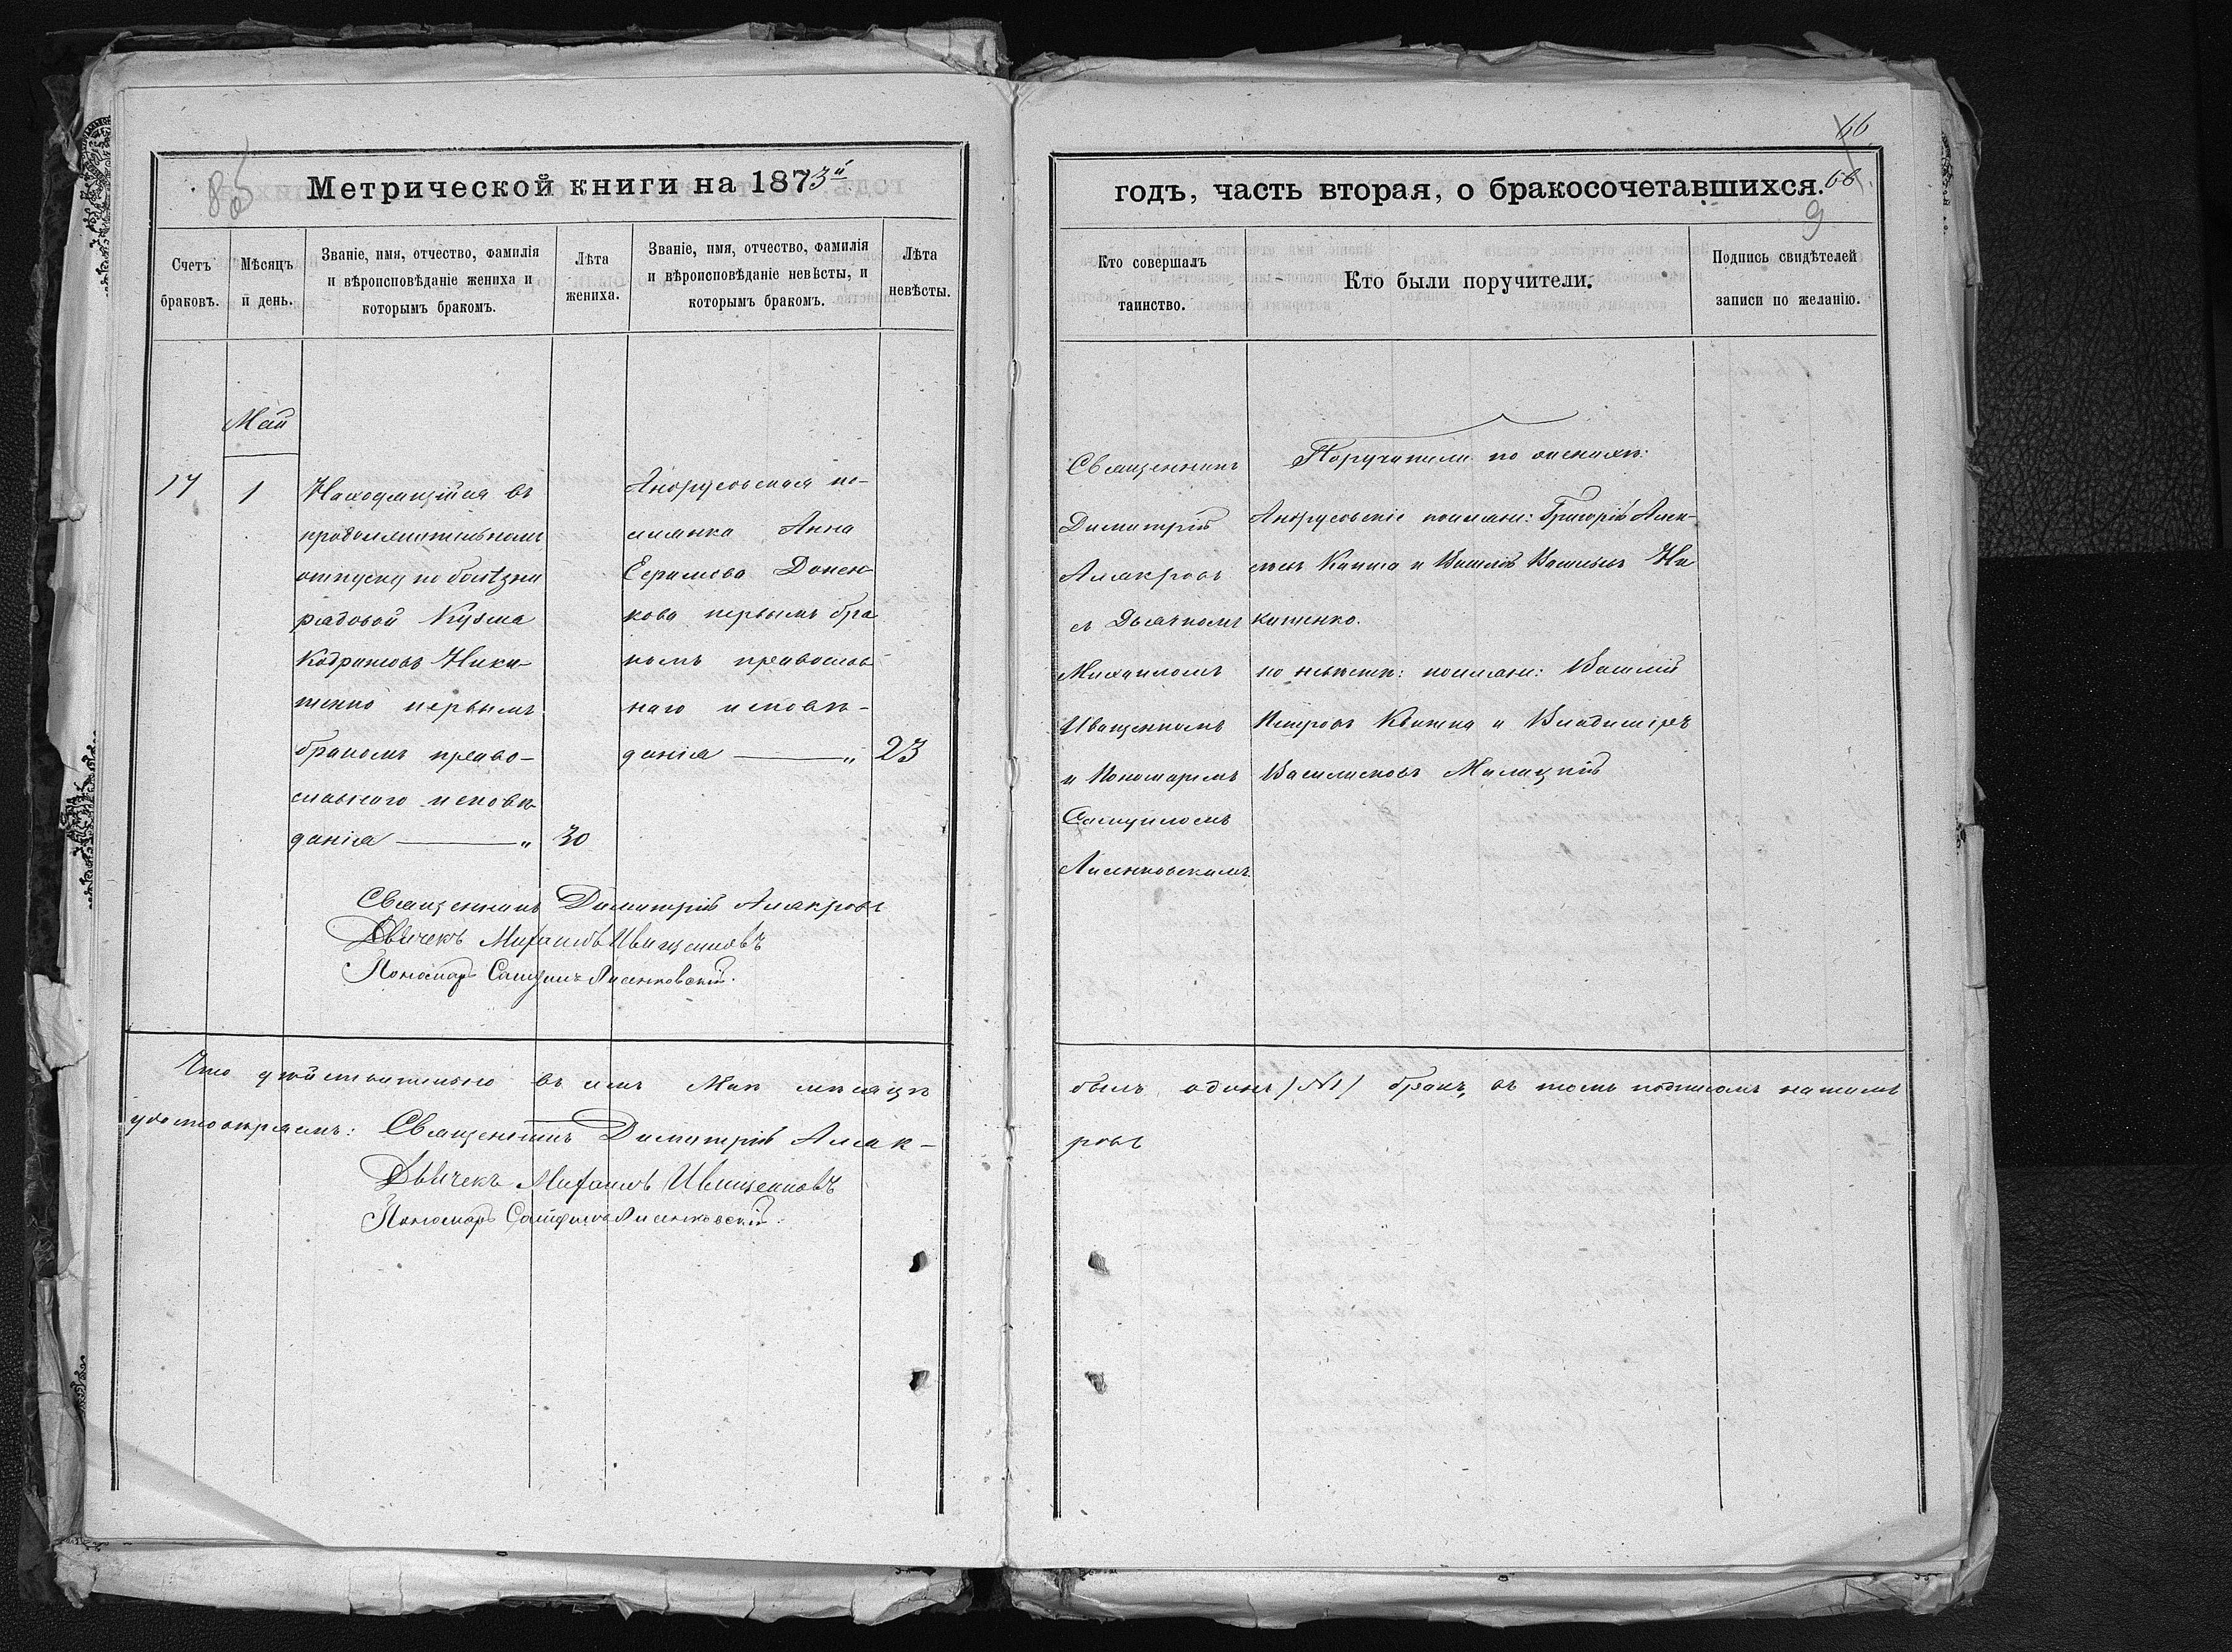 Метрической книги на 1873й
Счетъ браковъ.
Мѣсяцъ и день.
Званіе, имя, отчество, фамилія
и вѣроисповѣданіе жениха и
которымъ бракомъ.
Лѣта
жениха.
Званіе, имя, отчество, фамилія
и вѣроисповѣданіе невѣсты, и
которымъ бракомъ.
Лѣта
невѣсты.
Май
17
1
Находящійся въ
продолжительномъ
отпуску по болѣзни
рядовой Кузма
Кодратовъ Ники-
тенко первымъ
бракомъ право-
славнаго исповѣ
данія — „
30
Андрусовская по-
селянка Анна
Ефимова Донен-
кова первымъ бра
комъ православ
наго исповѣ-
данія — „
23
Священникъ Димитрій
Дьячекъ Михаилъ Иващенковъ
Пономарь Самуилъ Лисенковскій.
Что дѣйствительно въ семъ Маѣ мѣсяцѣ
удостовѣряемъ: Священникъ Димитрій
Дьячекъ Михаилъ Иващенковъ
Пономарь Самуилъ Лисенковскій.
66
годъ, часть вторая, о бракосочетавшихся.
9
Кто совершалъ
таинство.
Кто были поручители.
Подпись свидѣтелей
записи по желанію.
Священникъ
Димитрій
съ Дьячкомъ
Михаиломъ
Иващенкомъ
и Пономаремъ
Самуиломъ
Лисенковскимъ
Поручители по женихѣ:
Андрусовскіе поселяне: Григорій Алек-
и Василій Васильевъ Ни
китенко.
по невѣстѣ: поселяне: Василій
Петровъ и Владиміръ
Милецкій
былъ одинъ /№1/ бракъ, въ томъ подписомъ нашимъ
ровъ